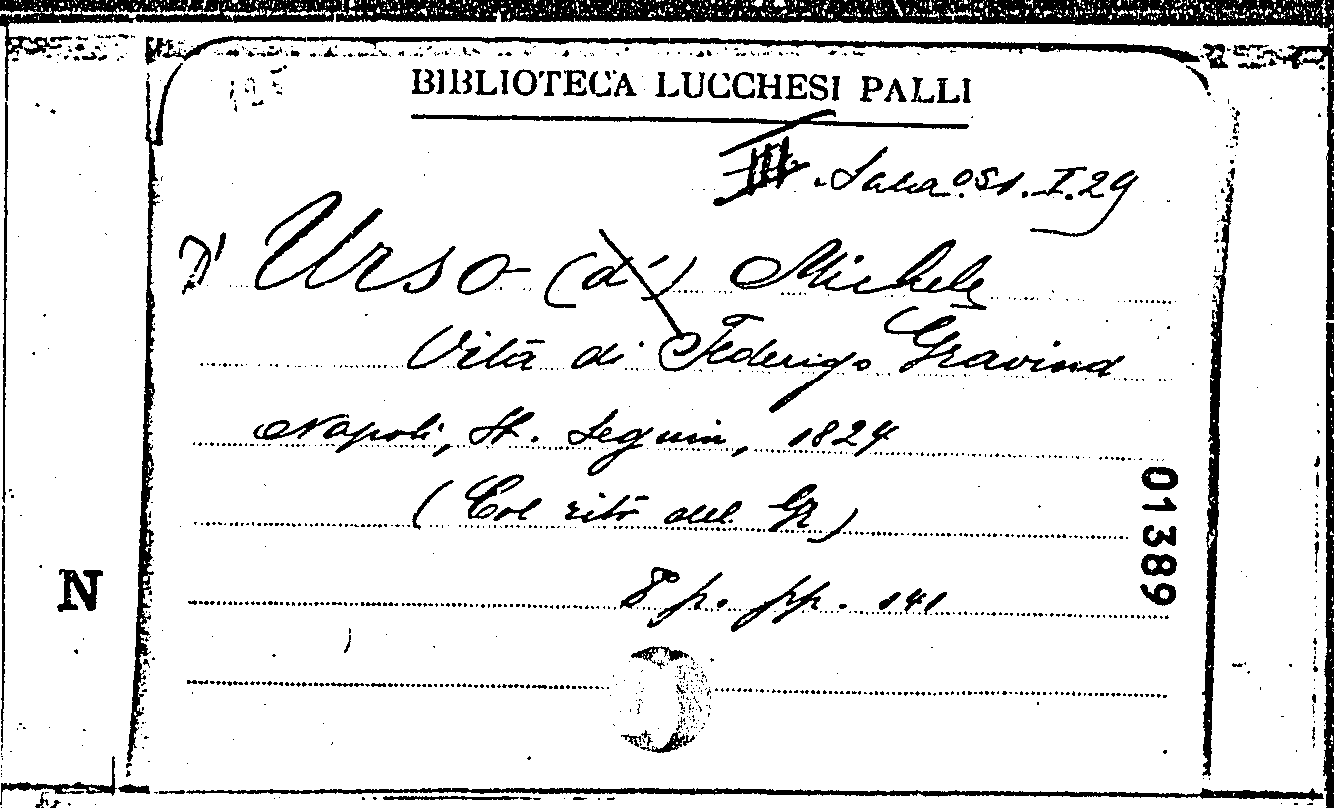 BIBLIOTECA LUCCHESI PALLI
III. Sala. I.29
D' Urso (d') Michele
Vita di Federigo Gravina
Napoli, St. Seguin, 1824
(Col ritr dell Gr)
8° p. pp. 141
01389
N